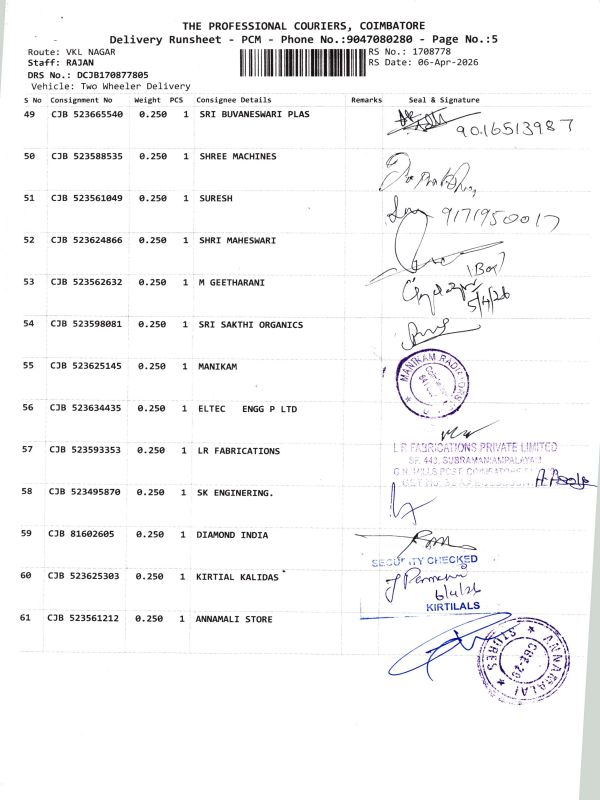 THE PROFESSIONAL COURIERS, COIMBATORE
Delivery Runsheet - PCM - Phone No.:9047080280 - Page No.:5
Route: VKL NAGAR RS No.: 1708778
Staff: RAJAN RS Date: 06-Apr-2026
DRS No.: DCJB170877805
Vehicle: Two Wheeler Delivery
S No Consignment No Weight PCS Consignee Details Remarks Seal & Signature
49 CJB 523665540 0.250 1 SRI BUVANESWARI PLAS
9016513987
50 CJB 523588535 0.250 1 SHREE MACHINES
51 CJB 523561049 0.250 1 SURESH
9171950017
52 CJB 523624866 0.250 1 SHRI MAHESWARI
53 CJB 523562632 0.250 1 M GEETHARANI
5/4/26
54 CJB 523598081 0.250 1 SRI SAKTHI ORGANICS
55 CJB 523625145 0.250 1 MANIKAM
MANIKAM RADIATORS
56 CJB 523634435 0.250 1 ELTEC ENGG P LTD
57 CJB 523593353 0.250 1 LR FABRICATIONS
LR FABRICATIONS PRIVATE LIMITED
SF. 443, SUBRAMANIAMPALAYAM
G.N. MILLS POST, COIMBATORE
58 CJB 523495870 0.250 1 SK ENGINERING.
59 CJB 81602605 0.250 1 DIAMOND INDIA
SECURITY CHECKED
60 CJB 523625303 0.250 1 KIRTIAL KALIDAS
6/4/26
KIRTILALS
61 CJB 523561212 0.250 1 ANNAMALI STORE
ANNAMALAI STORES
CBE-29